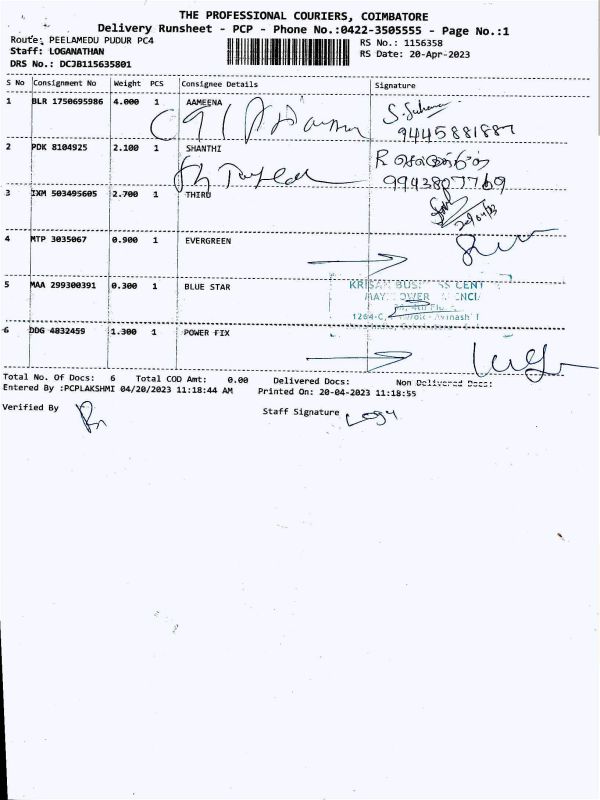 THE PROFESSIONAL COURIERS, COIMBATORE
Delivery Runsheet - PCP - Phone No.:0422-3505555 - Page No.:1
Route: PEELAMEDU PUDUR PC4
RS No.: 1156358
Staff: LOGANATHAN
RS Date: 20-Apr-2023
DRS No.: DCJB115635801
S No Consignment No Weight PCS Consignee Details Signature
1 BLR 1750695986 4.000 1 AAMEENA
9445881887
2 PDK 8104925 2.100 1 SHANTHI
9943807769
3 IXM 503495605 2.700 1 THIRU
20/04/23
4 MTP 3035067 0.900 1 EVERGREEN
5 MAA 299300391 0.300 1 BLUE STAR
6 DDG 4832459 1.300 1 POWER FIX
Total No. Of Docs: 6 Total COD Amt: 0.00 Delivered Docs: Non Delivered Docs:
Entered By :PCPLAKSHMI 04/20/2023 11:18:44 AM Printed On: 20-04-2023 11:18:55
Verified By
Staff Signature